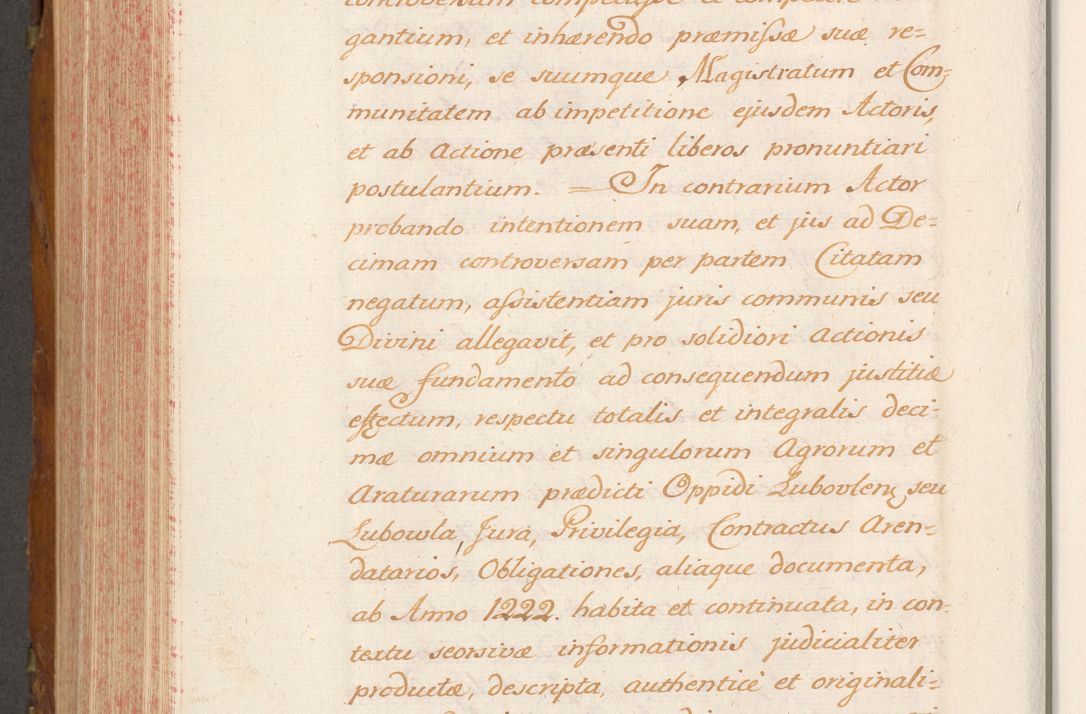 gantium, et inhærendo præmissæ suæ re=
sponsioni, se suumque Magistratum et Com=
munitatem ab impetitione ejusdem Actoris,
et ab Actione præsenti liberos pronuntiari
postulantium. = In contrarium Actor
probando intentionem suam, et jus ad De=
cimam controversam per partem Citatam
negatum, assistentiam juris communis seu
Divini allegavit, et pro solidiori Actionis
suæ fundamento ad consequendum justitiæ
effectum, respectu totalis et integralis deci=
mæ omnium et singulorum Agrorum et
Araturarum prædicti Oppidi Lubovlen: seu
Lubowla Jura, Privilegia, Contractus Aren=
datarios, Obligationes, aliaque documenta,
ab Anno 1222. habita et continuata, in con=
textu seorsivæ informationis judicialiter
productæ, descripta, authenticè et originali=